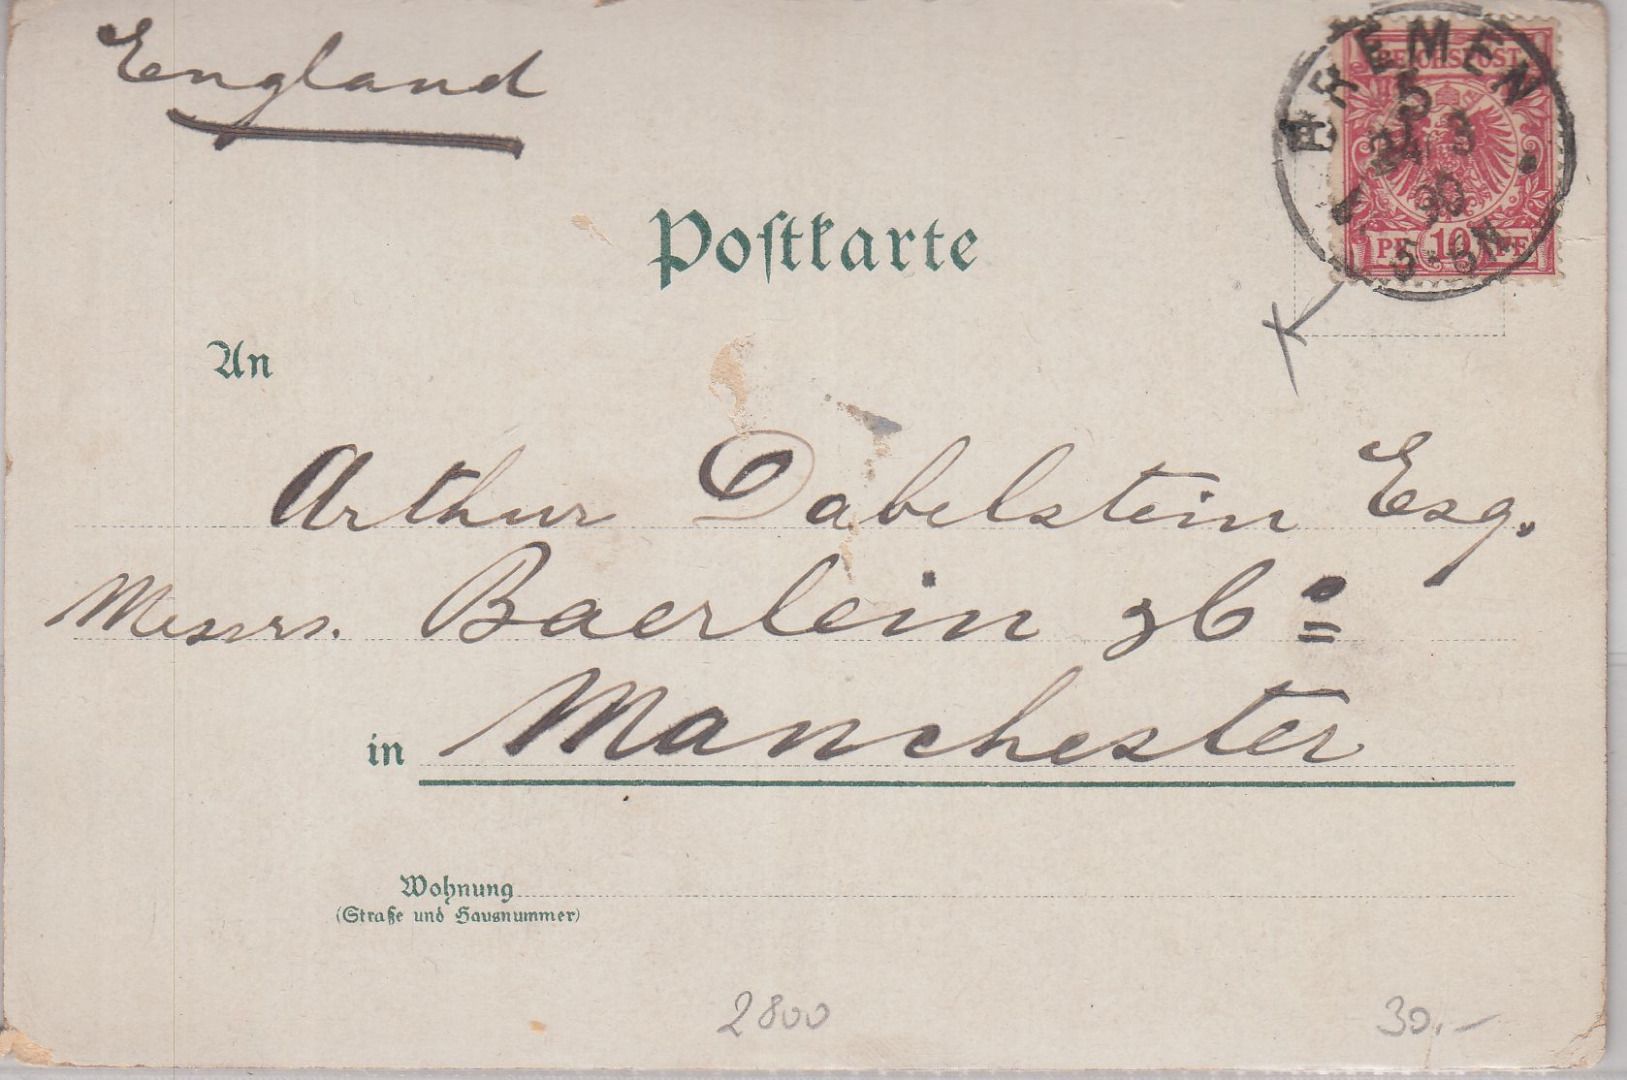 England
REICHSPOST
PF 10 PF
BREMEN
5
3
90
5-6N
Postkarte
An
Arthur Dabelstein Esq.
Messrs. Baerlein & Co
in Manchester
Wohnung
(Straße und Hausnummer)
2800
30.-